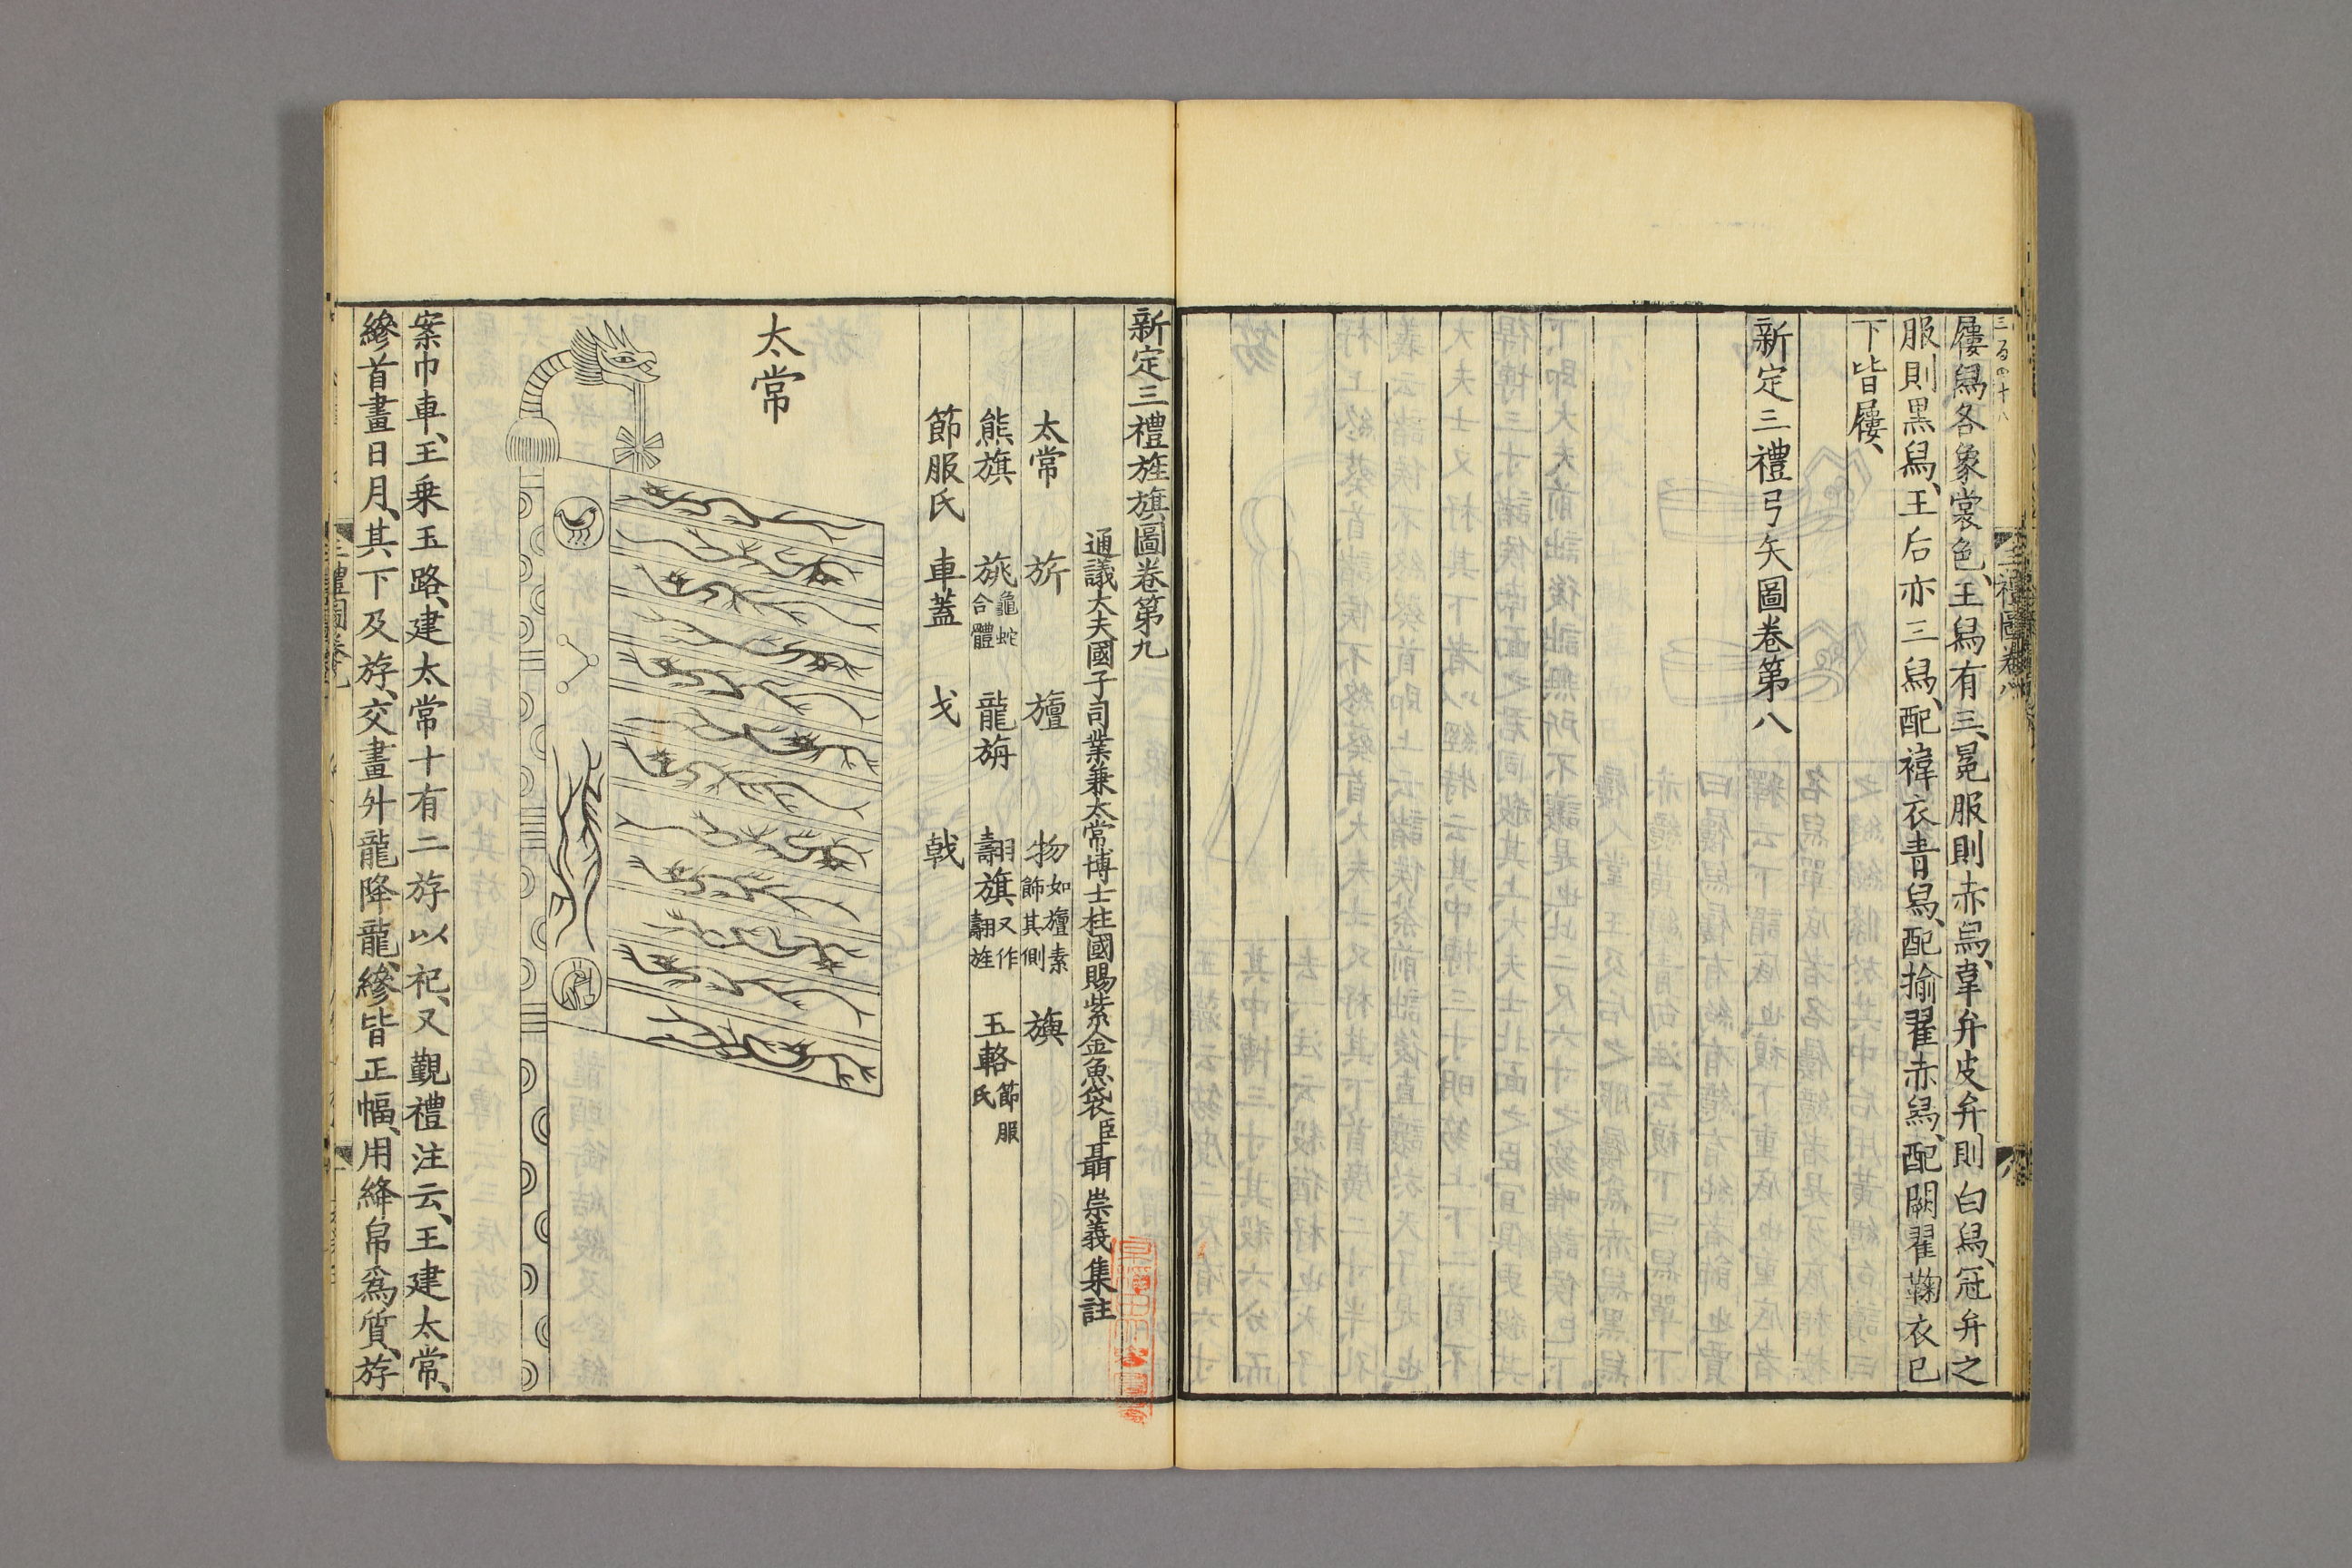 屨舄各象裳色、王舄有三、冕服則赤舄、韋弁皮弁則白舄、冠弁之
服則黑舄、王后亦三舄、配褘衣青舄、配揄翟赤舄、配闕翟鞠衣已
下皆屨、
新定三禮弓矢圖卷第八
新定三禮旌旗圖卷第九
通議大夫國子司業兼太常博士柱國賜紫金魚袋臣聶崇義集註
太常 旂 旜 物如旜素飾其側 旟
熊旗 旐龜蛇合體 龍旃 翿旗又作翿旌 玉輅節服氏
節服氏 車蓋 戈 戟
太常
案巾車、王乗玉路、建太常十有二斿以祀、又覲禮注云、王建太常、
縿首畫日月、其下及斿、交畫升龍降龍、縿皆正幅、用絳帛爲質、斿
三禮圖卷八
三禮圖卷九